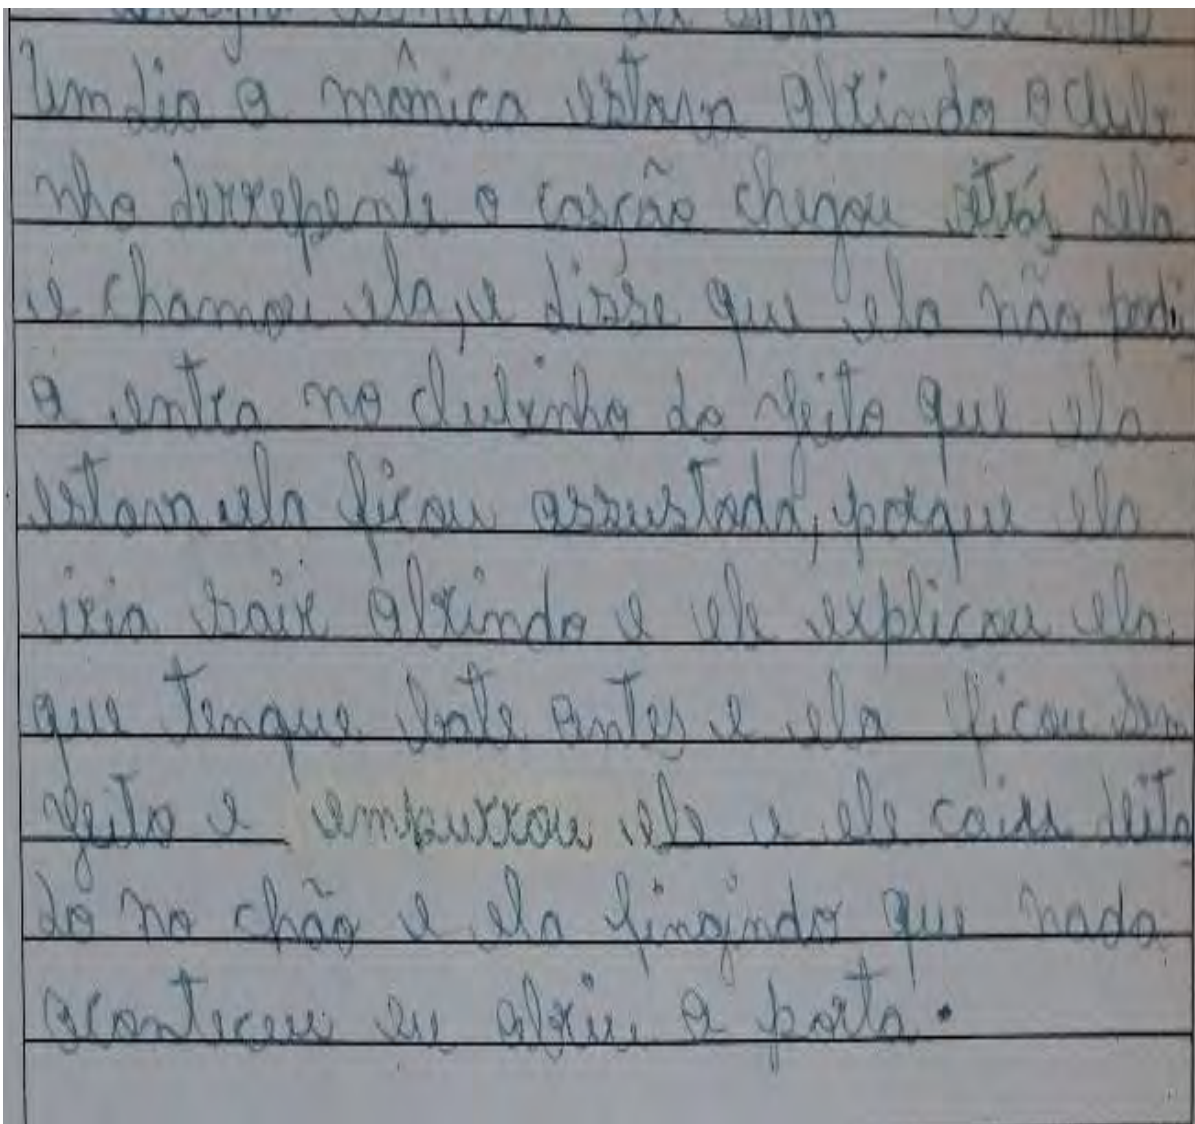 Um dia a mônica estava abrindo o clubi
nho derrepente o cascão chegou atrás dela
e chamou ela, e disse que ela não podi
a entra no clubinho do jeito que ela
estava ela ficou assustada, porque ela
iria sair abrindo e ele explicou ela
que tenque bate antes e ela ficou sem
jeito e empurrou ele e ele caiu deita
do no chão e ela fingindo que nada
aconteceu abriu a porta.